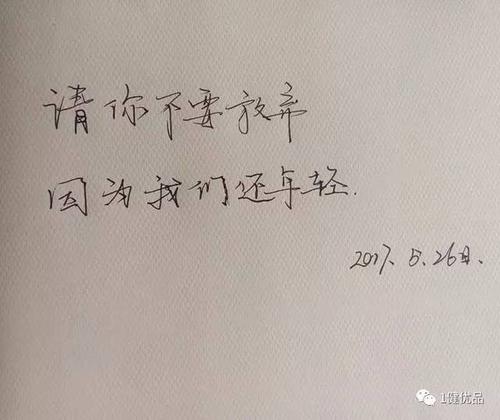 请你不要放弃
因为我们还年轻.
2017. 5. 26日.
1健优品